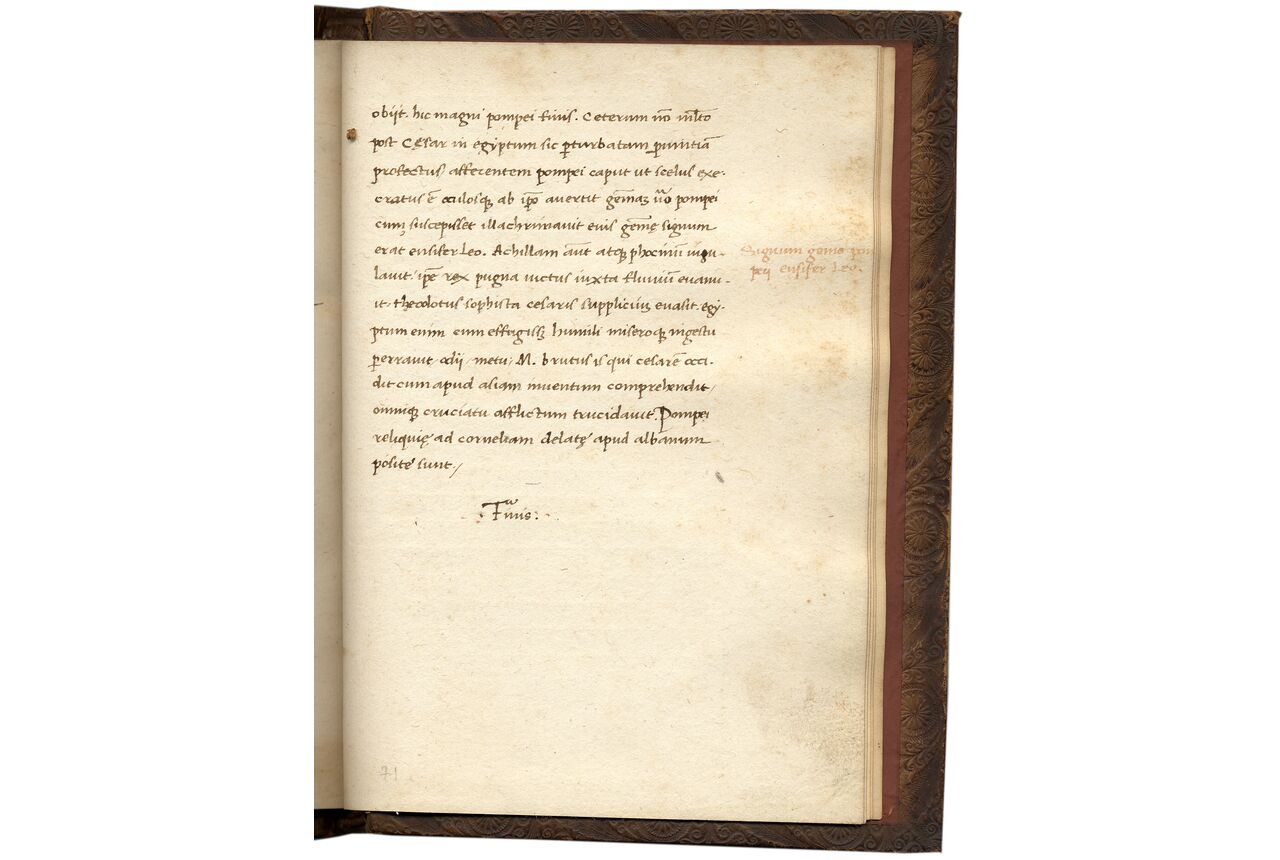 obijt. hic magni pompei finis. Ceterum nō ml̄to
post Cęsar in egyptum sic ꝑturbatam ꝓuintiā
profectus afferentem pompei caput ut scelus exe-
cratus ē oculosqꝫ ab ip̄o auertit gem̄aꝫ ū̊o pompei
cumꝫ suscepisset illachrimauit euis gem̄ę signum
erat ensifer leo. Achillam aūt atqꝫ phocinū iugu-
lauit. ip̄e rex pugna uictus iuxta fluuiū euanu-
it. theodotus sophista cesaris suppliciuꝫ euasit. egy-
ptum enim cum effugissꝫ humili miseroqꝫ ingestu
ꝑerrauit odii metu, M. brutus is qui cesarē occi-
dit cum apud asiam inuentum comprehendit,
omniqꝫ cruciatu afflictum trucidauit. Pompei
reliquię ad corneliam delatę apud albanum
positę sunt,
Signum gemę pom
peij ensifer Leo.
Finis:
71